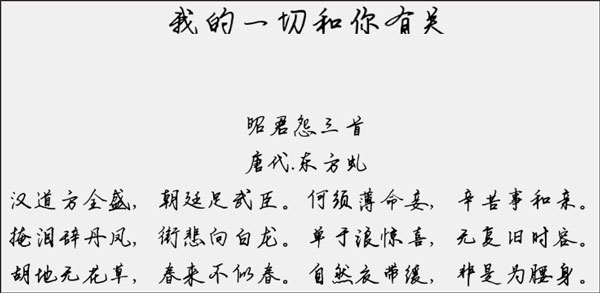 我的一切和你有关
昭君怨三首
唐代.东方虬
汉道方全盛，朝廷足武臣。何须薄命妾，辛苦事和亲。
掩泪辞丹凤，衔悲向白龙。单于浪惊喜，无复旧时容。
胡地无花草，春来不似春。自然衣带缓，非是为腰身。